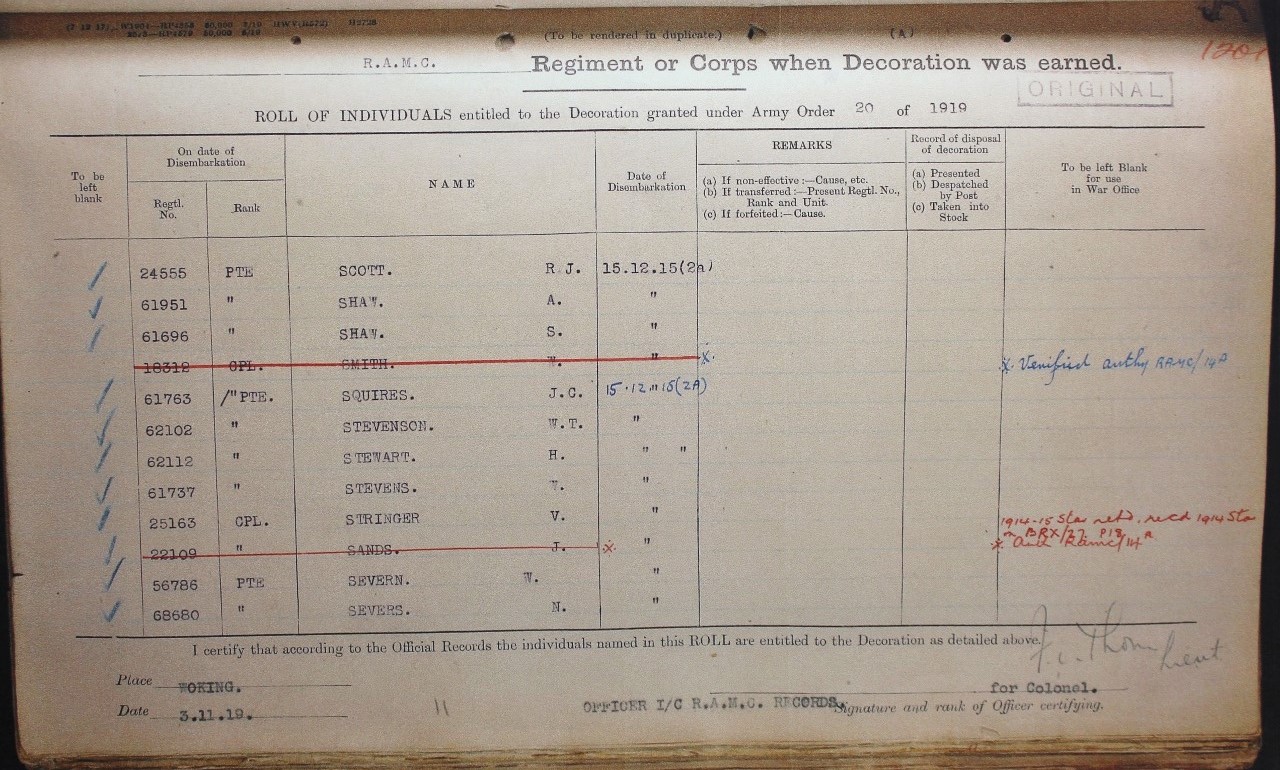 (7 12 17) W1904—HP4858 80,000 2/19 HWV(H572) H3728
2575—HP4579 50,000 6/19
(To be rendered in duplicate.) (A)
R.A.M.C. Regiment or Corps when Decoration was earned.
ORIGINAL
ROLL OF INDIVIDUALS entitled to the Decoration granted under Army Order 20 of 1919
To be left blank
On date of Disembarkation
Regtl. No.
Rank
NAME
Date of Disembarkation
REMARKS
(a) If non-effective:—Cause, etc.
(b) If transferred:—Present Regtl. No., Rank and Unit.
(c) If forfeited:—Cause.
Record of disposal of decoration
(a) Presented
(b) Despatched by Post
(c) Taken into Stock
To be left Blank for use in War Office
24555 PTE SCOTT. R.J. 15.12.15(2a)
61951 " SHAW. A. "
61696 " SHAW. S. "
18312 CPL. SMITH. W. " x. x. Verified authy RAMC/14A
61763 /"PTE. SQUIRES. J.C. 15.12"15(2A)
62102 " STEVENSON. W.T. "
62112 " STEWART. H. " "
61737 " STEVENS. "
25163 CPL. STRINGER V. " 1914-15 Star retd. recd 1914 Star
BRX/27 P18
22109 " SANDS. J. x. " x Auth Ramc/14A
56786 PTE SEVERN. W. "
68680 " SEVERS. N. "
I certify that according to the Official Records the individuals named in this ROLL are entitled to the Decoration as detailed above.
Lieut
Place WOKING. for Colonel.
Date 3.11.19. 11 OFFICER I/C R.A.M.C. RECORDS. Signature and rank of Officer certifying.